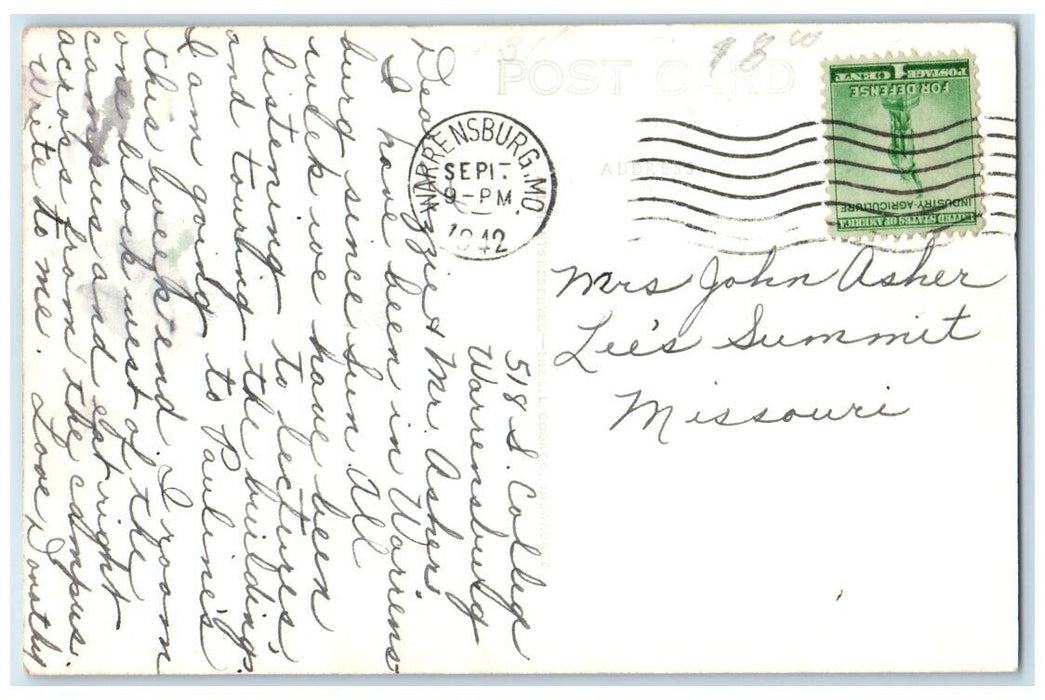 POST CARD
ADDRESS
98
WARRENSBURG, MO.
9-PM
1942
UNITED STATES OF AMERICA
INDUSTRY AGRICULTURE
FOR DEFENSE
1 CENT
POSTAGE
Mrs John Asher
Lee's Summit
Missouri
518 S. College
Warrensburg
Dear Lizzie & Mr. Asher:
I have been in Warrens-
burg since Sun. All
week we have been
listening to lectures,
and touring the buildings.
I am going to Pauline's
this week end. I room
one block west of the
campus and eat right
across from the campus.
Write to me. Love, Dorothy